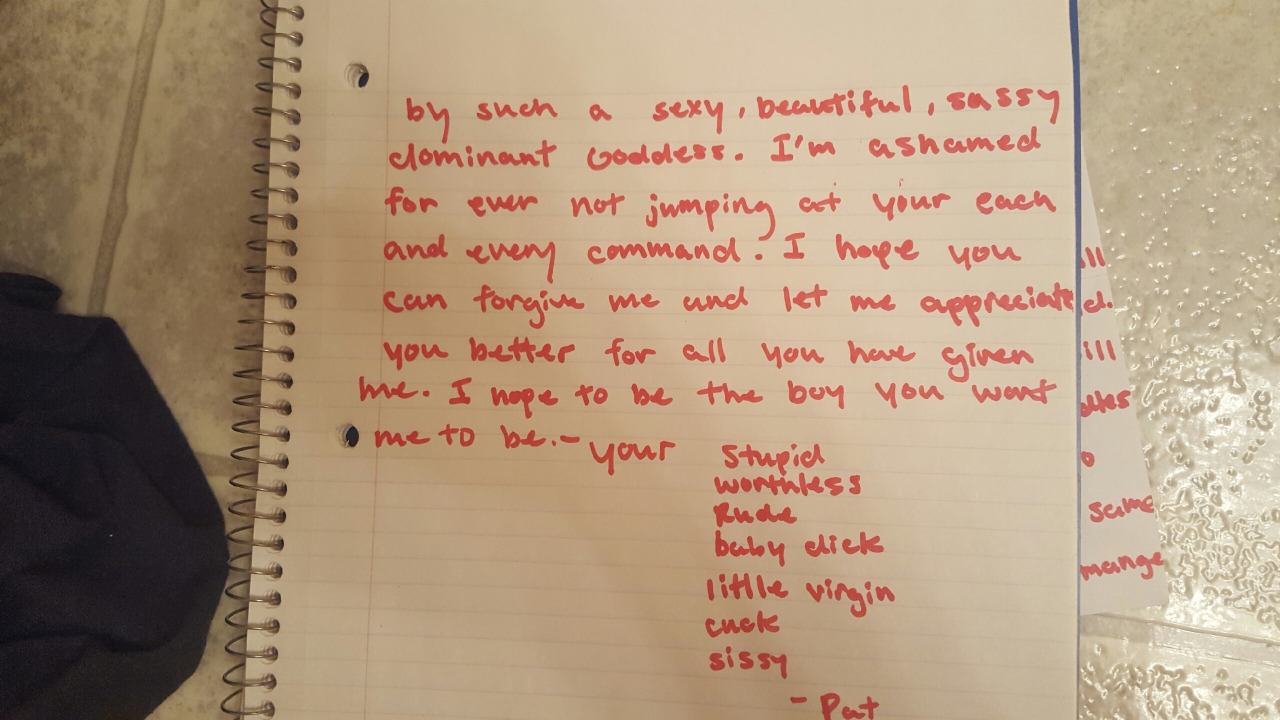 by such a sexy, beautiful, sassy
dominant Goddess. I'm ashamed
for ever not jumping at your each
and every command. I hope you
can forgive me and let me appreciate
you better for all you have given
me. I hope to be the boy you want
me to be. - your stupid
worthless
Rude
baby dick
litlle virgin
cuck
sissy
- Pat
ill
d.
ill
o
same
mange